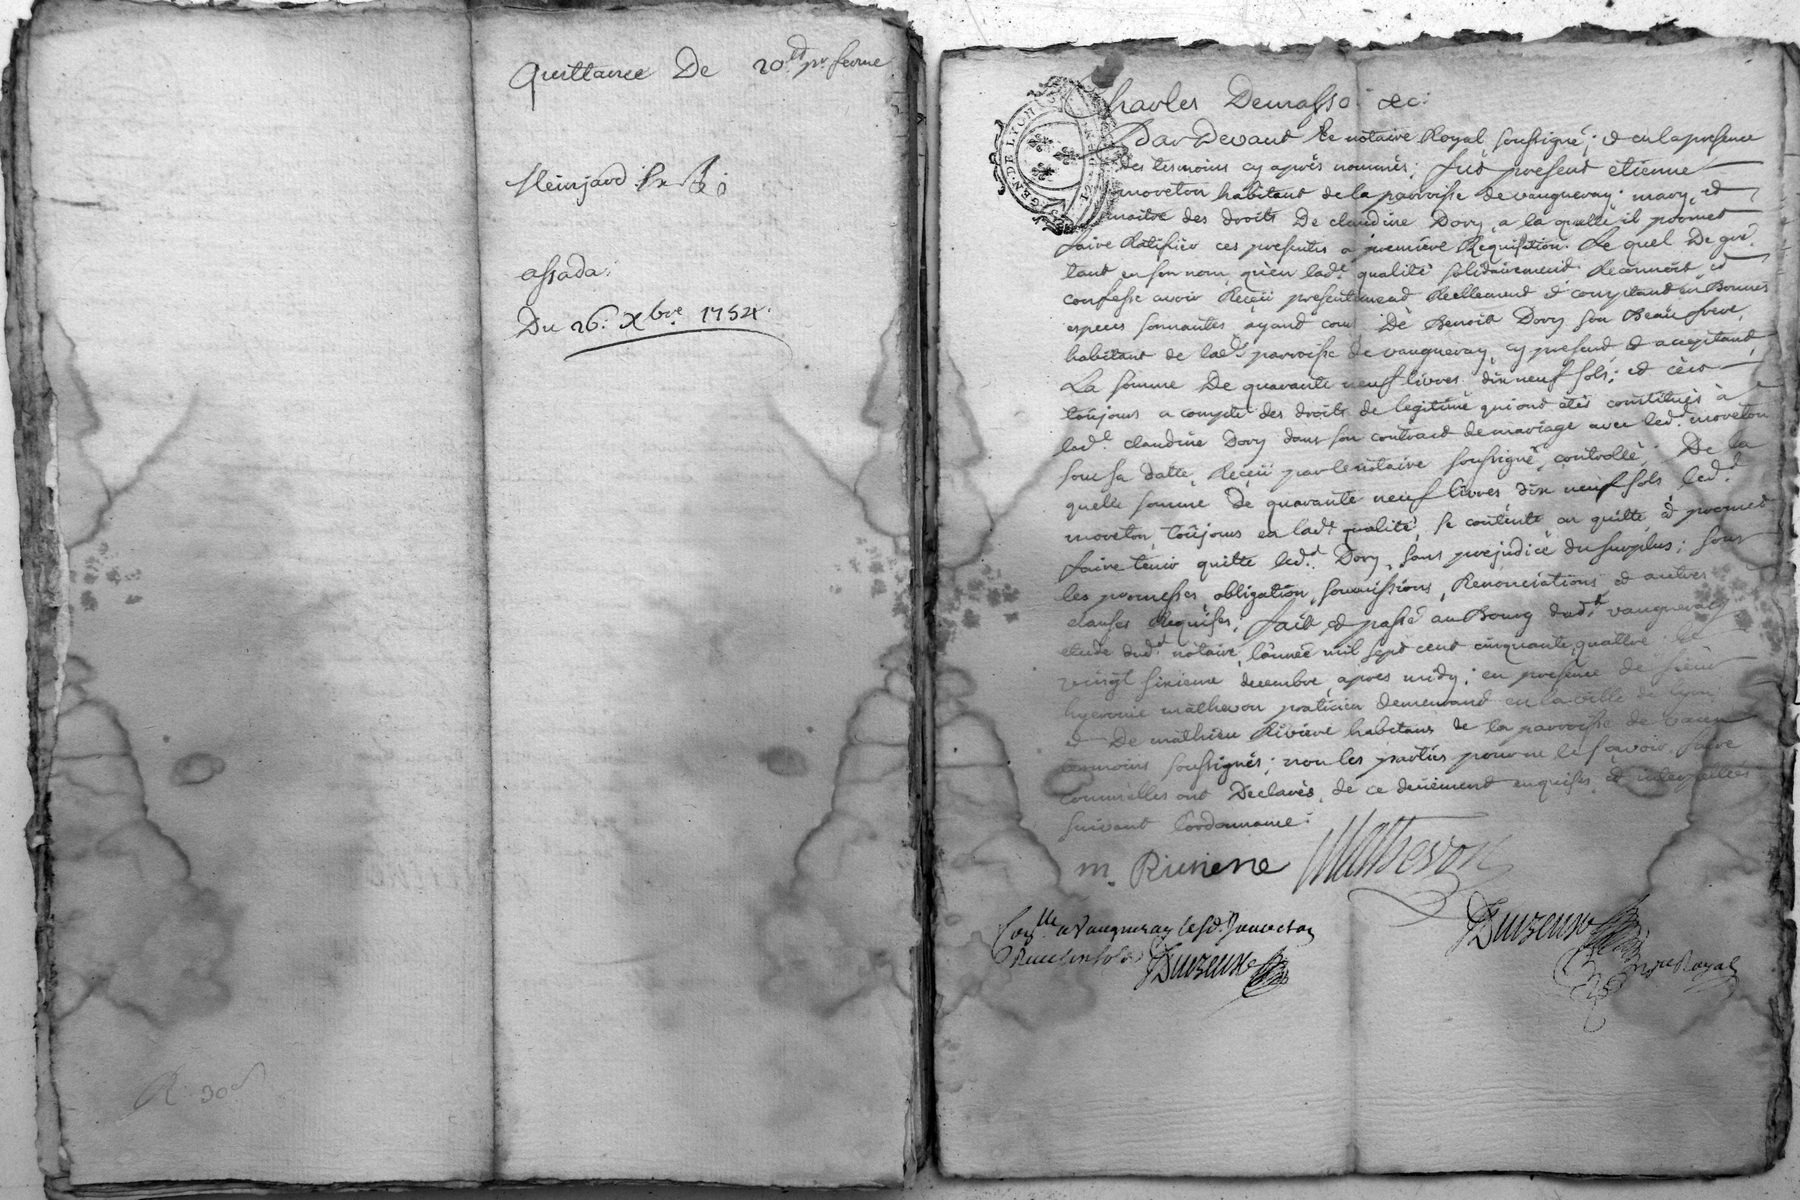 Quittance De 20.lt pr ferme
assada
Du 26. Xbre. 1754.
R. 30s
GEN. DE LYON
Charles Demasso. &c:
Pardevant le notaire Royal soussigné; et en la presence
des tesmoins cy après nommés; fut present etienne
moreton habitant de la parroisse de vaugneray; mary, et
maitre des droits De claudine Dory, a la quelle il promet
faire Ratifier ces presentes a première Requisition. Le quel De gré,
tant en son nom, qu'en lade. qualité solidairement Reconnoit et
confesse avoir Reçeü presentement Reellement et comptant en Bonnes
especes sonnantes ayant cour De Benoit Dory son Beau frere,
habitant de lade. parroisse de vaugneray, cy present et acceptant,
La somme De quarante neuf livres dix neuf sols; et ce
toûjours a compte des droits de legitime qui ont étés constitués à
lade. claudine Dory dans son contract de mariage avec led. moreton
sous sa datte, Reçeü par le notaire soussigné, controllé; De la
quelle somme De quarante neuf livres dix neuf sols led.
moreton, toûjours en lade. qualité, se contente en quitte, et promet
faire tenir quitte led. Dory, sans prejudice du surplus; sous
les promesses obligation, soumissions, Renonciations et autres
clauses Requises; fait et passé au Bourg dud. vaugneray
etude dud. notaire, l'année mil sept cent cinquante quattre; le
vingt sixieme decembre après midy; en presence de sieur
hyeromie mathevon praticien demeurant en la ville de Lyon
et De mathieu Riviere habitans de la parroisse de vaux
tesmoins soussignés; non les parties pour ne le sçavoir faire
comm'elles ont Declarés, de ce deüement enquises et interpellées
suivant l'ordonnance:
m. Riviere Mathevon
Conlle a Vaugneray le sd.
Duzeux Duzeux
nore Royal